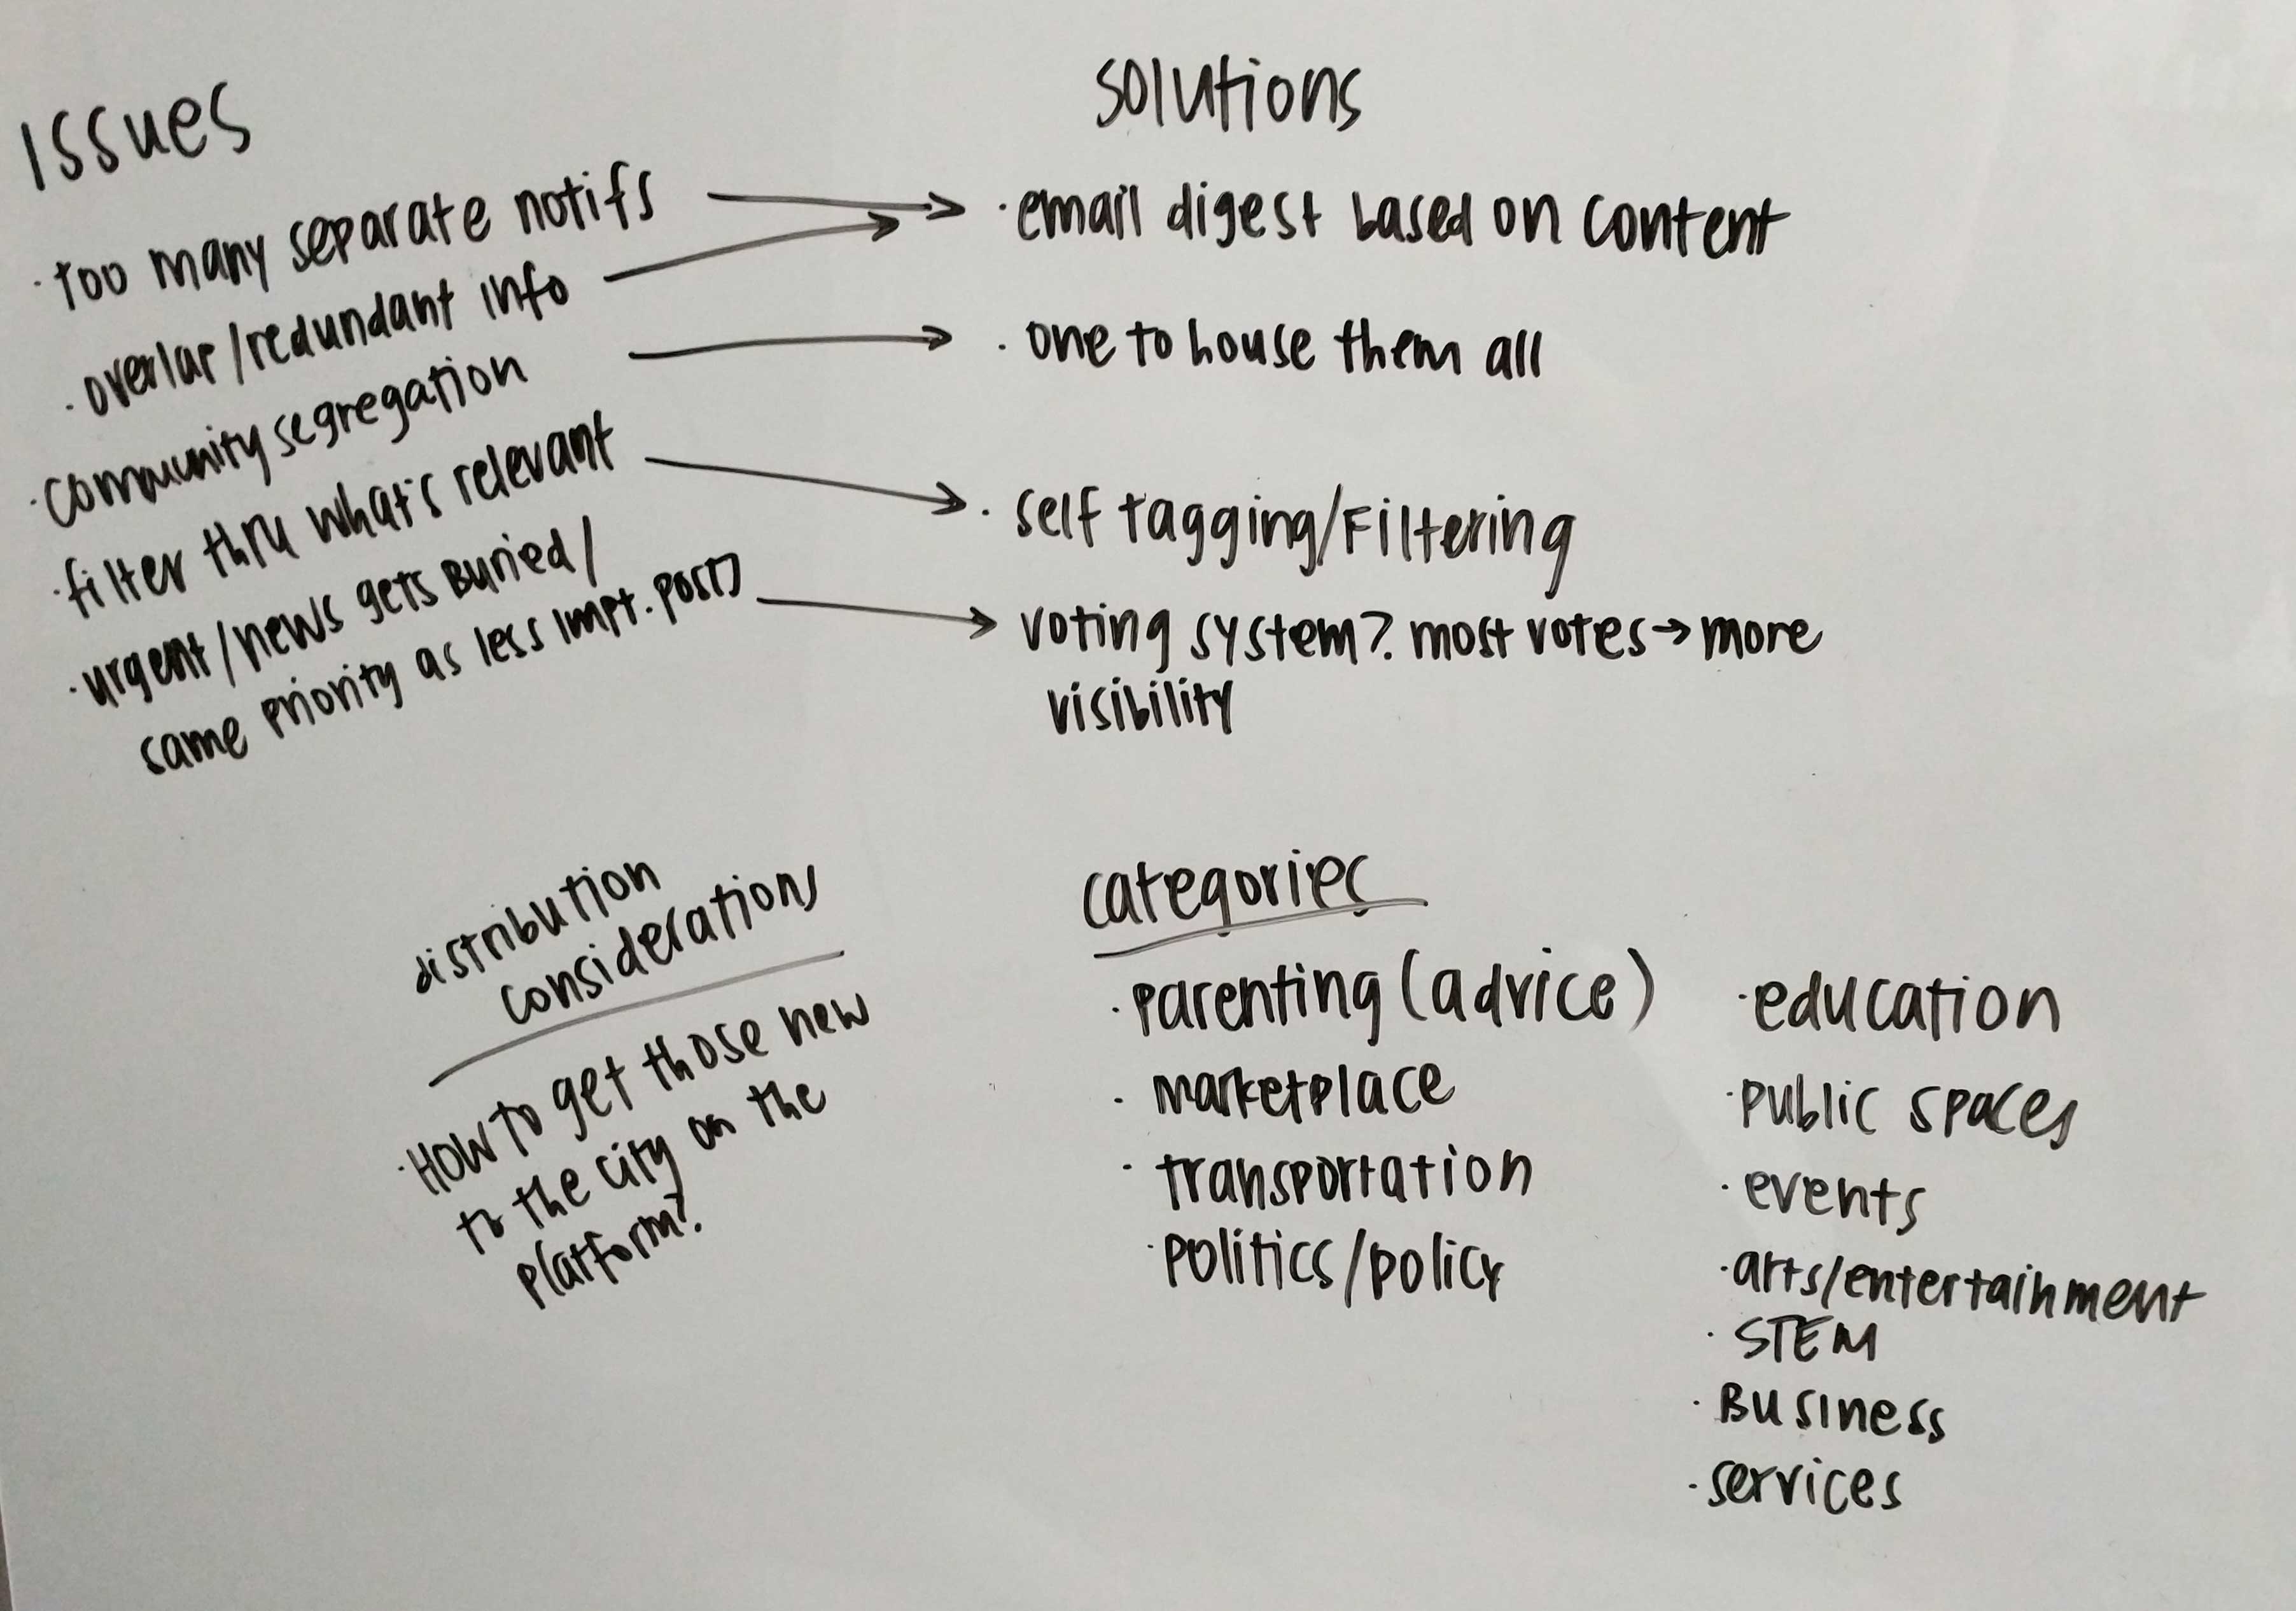 Issues
· too many separate notifs
· overlap/redundant info
· community segregation
· filter thru what's relevant
· urgent/news gets buried/
same priority as less impt. posts
solutions
· email digest based on content
· one to house them all
· self tagging/Filtering
voting system? most votes → more
visibility
distribution
considerations
· How to get those new
to the city on the
platform?
categories
· parenting (advice)
· marketplace
· transportation
· politics/policy
· education
· public spaces
· events
· arts/entertainment
· STEM
· Business
· services